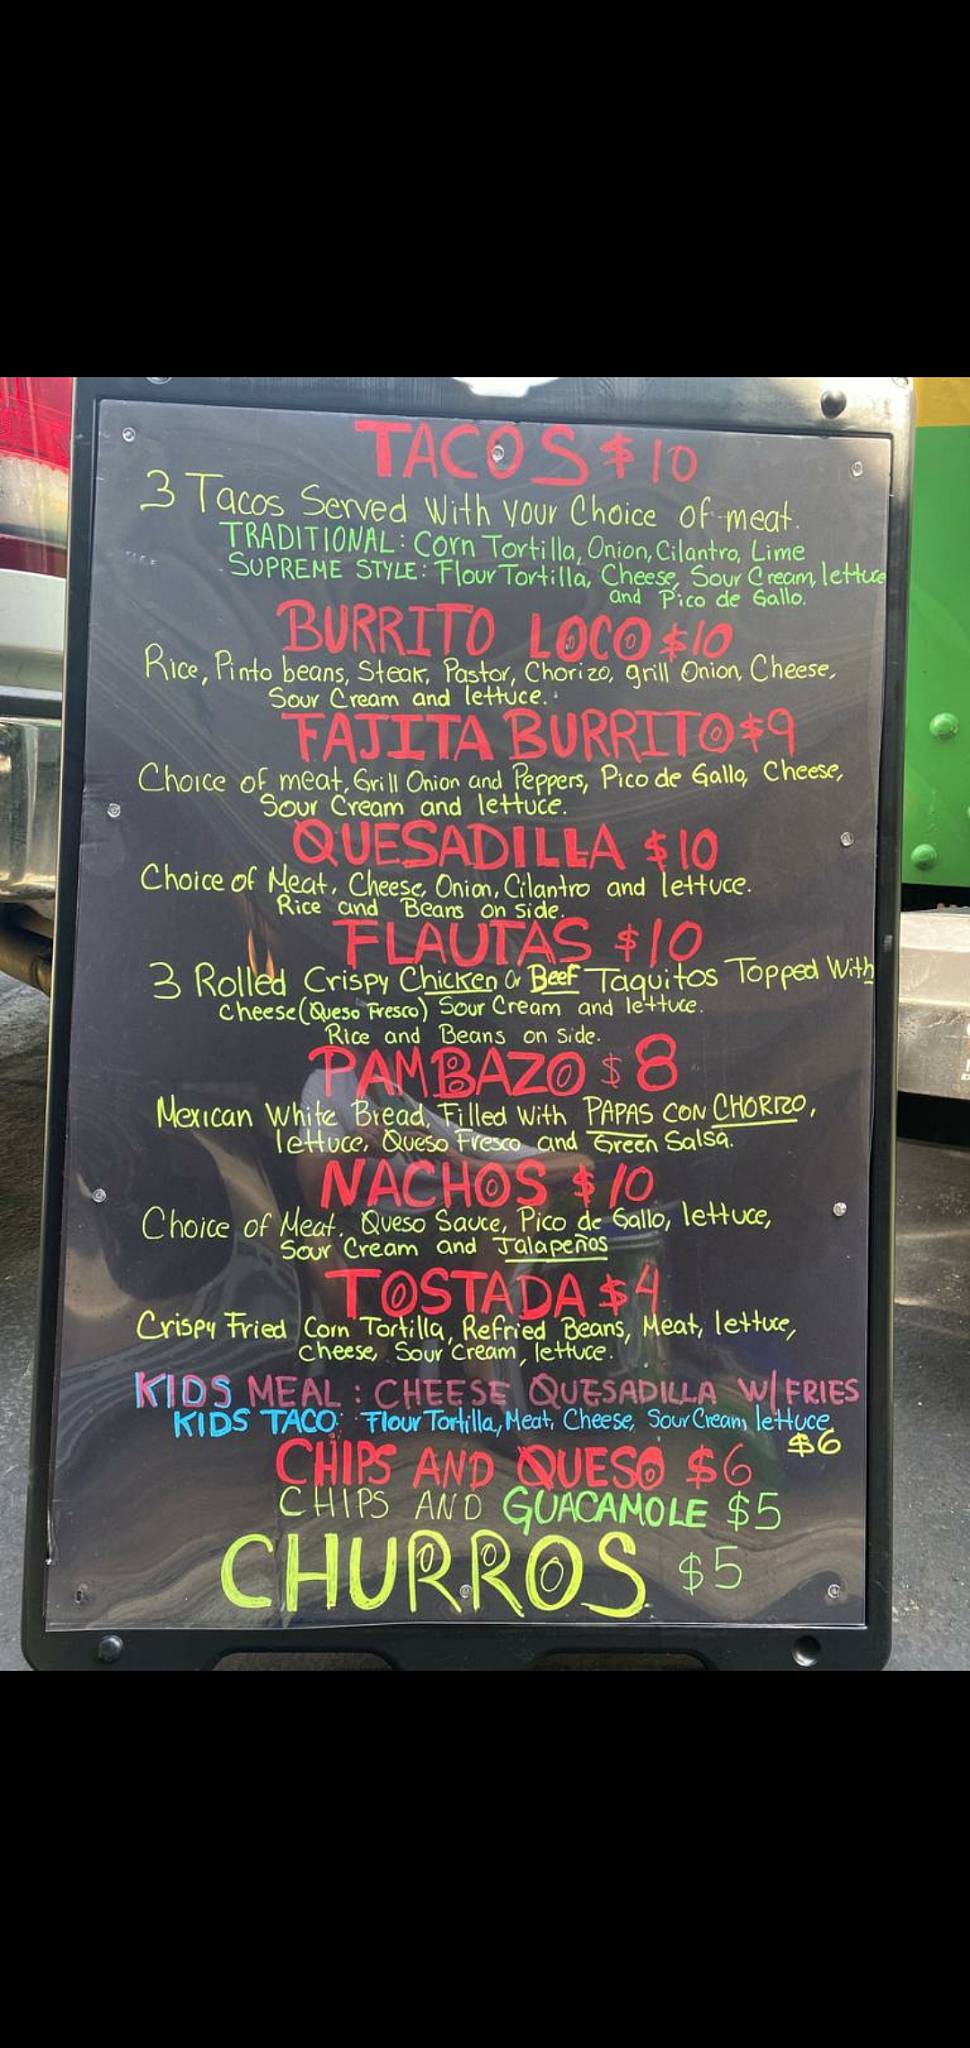 TACOS $10
3 Tacos Served With your Choice of meat.
TRADITIONAL: Corn Tortilla, Onion, Cilantro, Lime
SUPREME STYLE: Flour Tortilla, Cheese, Sour Cream, lettuce
and Pico de Gallo.
BURRITO LOCO $10
Rice, Pinto beans, Steak, Pastor, Chorizo, grill Onion, Cheese,
Sour Cream and lettuce.
FAJITA BURRITO $9
Choice of meat, Grill Onion and Peppers, Pico de Gallo, Cheese,
Sour Cream and lettuce.
QUESADILLA $10
Choice of Meat, Cheese, Onion, Cilantro and lettuce.
Rice and Beans on side.
FLAUTAS $10
3 Rolled Crispy Chicken or Beef Taquitos Topped With
Cheese (Queso Fresco) Sour Cream and lettuce.
Rice and Beans on side.
PAMBAZO $8
Mexican White Bread, Filled With PAPAS CON CHORIZO,
lettuce, Queso Fresco and Green Salsa.
NACHOS $10
Choice of Meat, Queso Sauce, Pico de Gallo, lettuce,
Sour Cream and Jalapeños
TOSTADA $4
Crispy Fried Corn Tortilla, Refried Beans, Meat, lettuce,
Cheese, Sour Cream, lettuce.
KIDS MEAL: CHEESE QUESADILLA W/ FRIES
KIDS TACO: Flour Tortilla, Meat, Cheese, Sour Cream, lettuce
$6
CHIPS AND QUESO $6
CHIPS AND GUACAMOLE $5
CHURROS $5